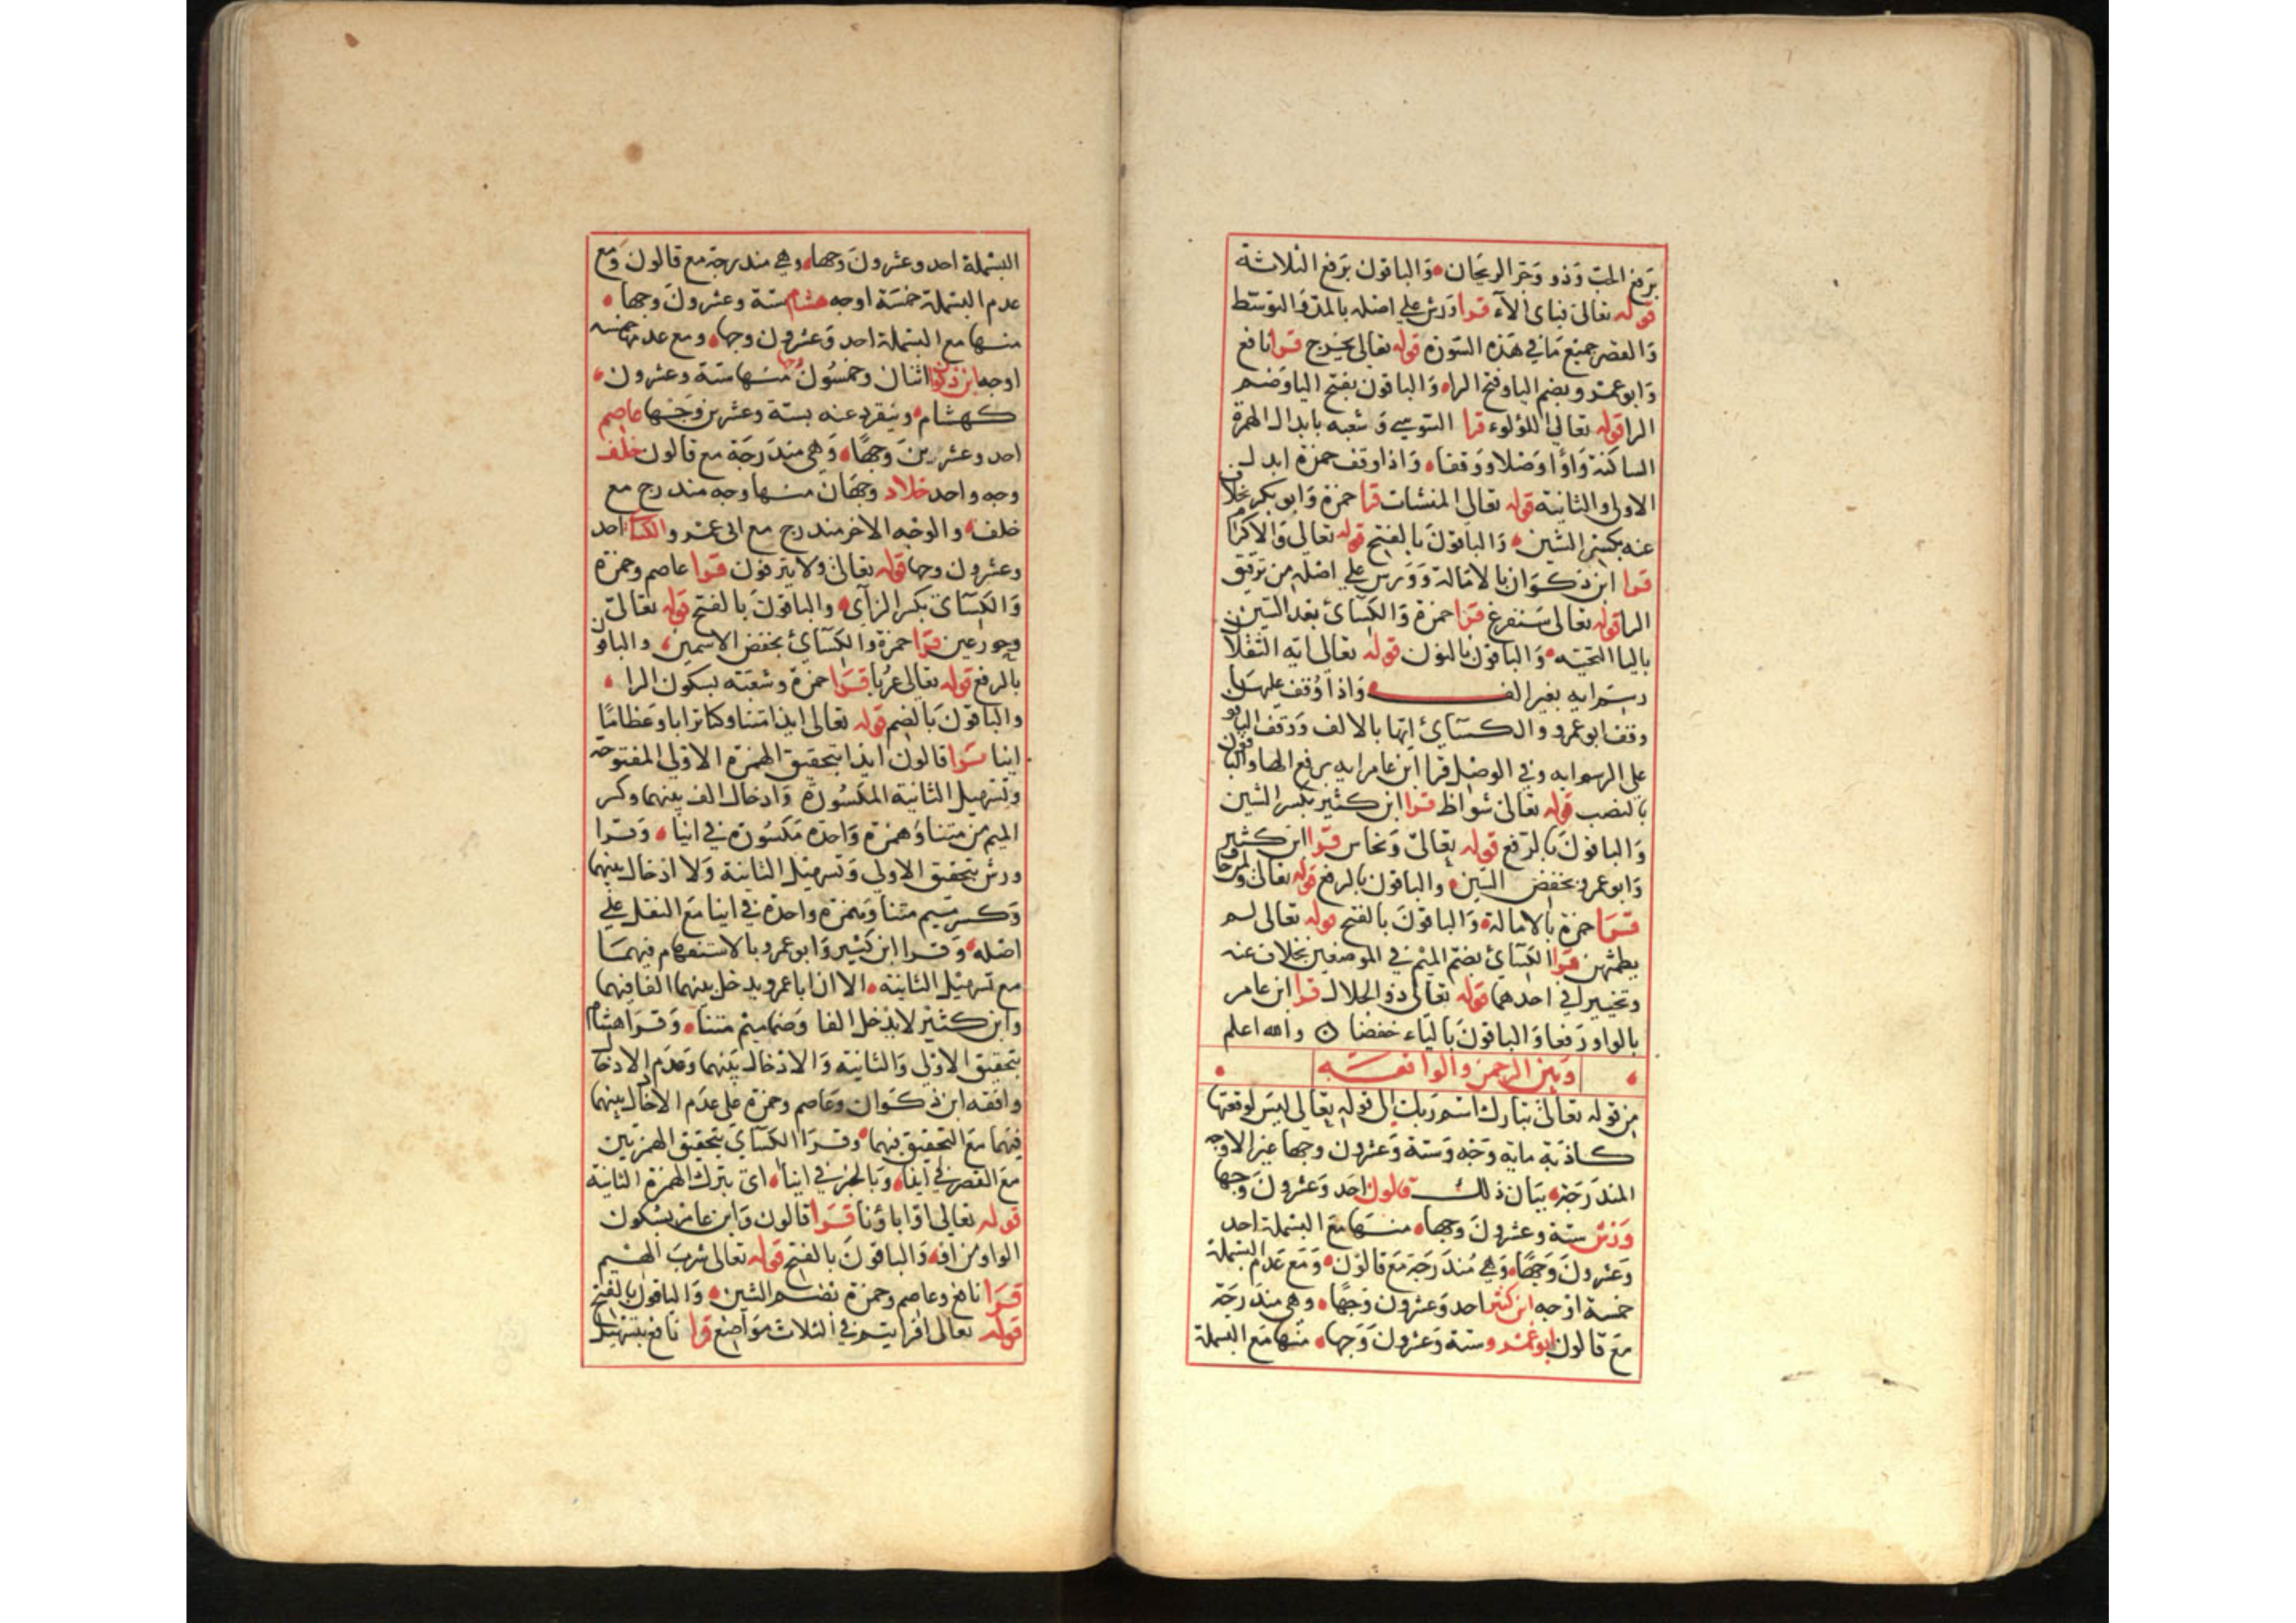 برفع الحب وذو وجر الريحان والباقون برفع الثلاثة
قوله تعالى فباى الآء قرا ورش على اصله بالمد والتوسط
والقصر جميع ما في هذه السورة قوله تعالى يخرج قرا نافع
وابو عمرو بضم اليا وفتح الرا والباقون بفتح اليا وضم
الرا قوله تعالى اللؤلوء قرا السوسي وشعبه بابدال الهمزة
الساكنة واوًا وصلا ووقفا واذا وقف حمزة ابدل
الاولى والثانية قوله تعالى المنشات قرا حمزة وابو بكر بخلاف
عنه بكسر الشين والباقون بالفتح قوله تعالى والاكرام
قرا ابن ذكوان بالامالة وورس على اصله من ترقيق
الرا قوله تعالى سنفرغ قرا حمزة والكسائ بعد السين
باليا التحتيه والباقون بالنون قوله تعالى ايه الثقلان
رسم ايه بغير الف واذا وقف عليها
وقف ابو عمرو والكسائ ايها بالالف ووقف الباقون
على الرسم ايه وفي الوصل قرا ابن عامر ايه برفع الها والباقون
بالنصب قوله تعالى شواظ قرا ابن كثير بكسر الشين
والباقون بالرفع قوله تعالى ونحاس قرا ابن كثير
وابو عمرو بخفض السين والباقون بالرفع قوله تعالى والمرجان
قرا حمزة بالامالة والباقون بالفتح قوله تعالى لم
يطمثهن قرا الكسائ بضم الميم في الموضعين بخلاف عنه
وتخيير في احدهما قوله تعالى ذو الجلال قرا ابن عامر
بالواو رفعا والباقون بالياء خفضا والله اعلم
وبين الرحمن والواقعه
من قوله تعالى تبارك اسم ربك الى قوله تعالى ليس لوقعتها
كاذبة مايه وجه وستة وعشرون وجها غير الاوجه
المندرجة بيان ذلك قالون احد وعشرون وجها
ورش ستة وعشرون وجها منها مع البسملة احد
وعشرون وجهًا وهي مندرجة مع قالون ومع عدم البسملة
خمسة اوجه ابن كثير احد وعشرون وجهًا وهي مندرجة
مع قالون ابو عمرو ستة وعشرون وجها منها مع البسملة
البسملة احد وعشرون وجها وهي مندرجة مع قالون ومع
عدم البسملة خمسة اوجه هشام ستة وعشرون وجها
منها مع البسملة احد وعشرون وجها ومع عدمها خمسه
اوجه ابن ذكوان اثنان وخمسون وجها منها ستة وعشرون
كهشام وينفرد عنه بستة وعشرين وجها عاصم
احد وعشرين وجهًا وهي مندرجة مع قالون خلف
وجه واحد خلاد وجهان منها وجه مندرج مع
خلف والوجه الاخر مندرج مع ابى عمرو والكسا احد
وعشرون وجها قوله تعالى ولا ينزفون قرا عاصم وحمزة
والكسائ بكسر الزآى والباقون بالفتح قوله تعالى
وحور عين قرا حمزة والكسائ بخفض الاسمين والباقون
بالرفع قوله تعالى عربا قرا حمزة وشعبه بسكون الرا
والباقون بالضم قوله تعالى ايذا متنا وكنا ترابا وعظاما
اينا قرا قالون ايذا بتحقيق الهمزة الاولى المفتوحة
وتسهيل الثانية المكسورة وادخال الف بينهما وكسر
الميم من متنا وهمزة واحدة مكسورة في انيا وقرا
ورش بتحقيق الاولى وتسهيل الثانية ولا ادخال بينهما
وكسر ميم متنا وهمزة واحدة في اينا مع النقل على
اصله وقرا ابن كثير وابو عمرو بالاستفهام فيهما
مع تسهيل الثانية الا ان ابا عمرو يدخل بينهما الفا فيهما
وابن كثير لا يدخل الفا وضما ميم متنا وقرا هشام
بتحقيق الاولى والثانية والادخال بينهما وعدم الادخال
وافقه ابن ذكوان وعاصم وحمزة على عدم الادخال بينهما
فيهما مع التحقيق فيهما وقرا الكسائ بتحقيق الهمزتين
مع القصر في ايذا وبالخبر في اينا اى بترك الهمزة الثانية
قوله تعالى اوَاباؤنا قرا قالون وابن عامر بسكون
الواو من او والباقون بالفتح قوله تعالى شرب الهيم
قرا نافع وعاصم وحمزة بضم الشين والباقون بالفتح
قوله تعالى افرايتم في الثلاث مواضع قرا نافع بتسهيل